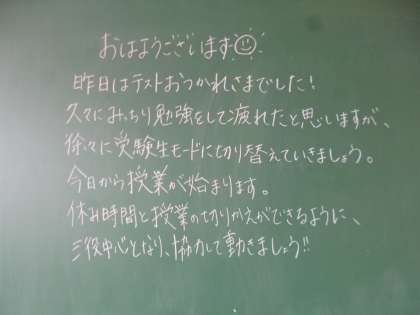 おはようございます☺
昨日はテストおつかれさまでした!
久々にみっちり勉強をして疲れたと思いますが、
徐々に受験生モードに切り替えていきましょう。
今日から授業が始まります。
休み時間と授業の切りかえができるように、
三役中心となり、協力して動きましょう!!